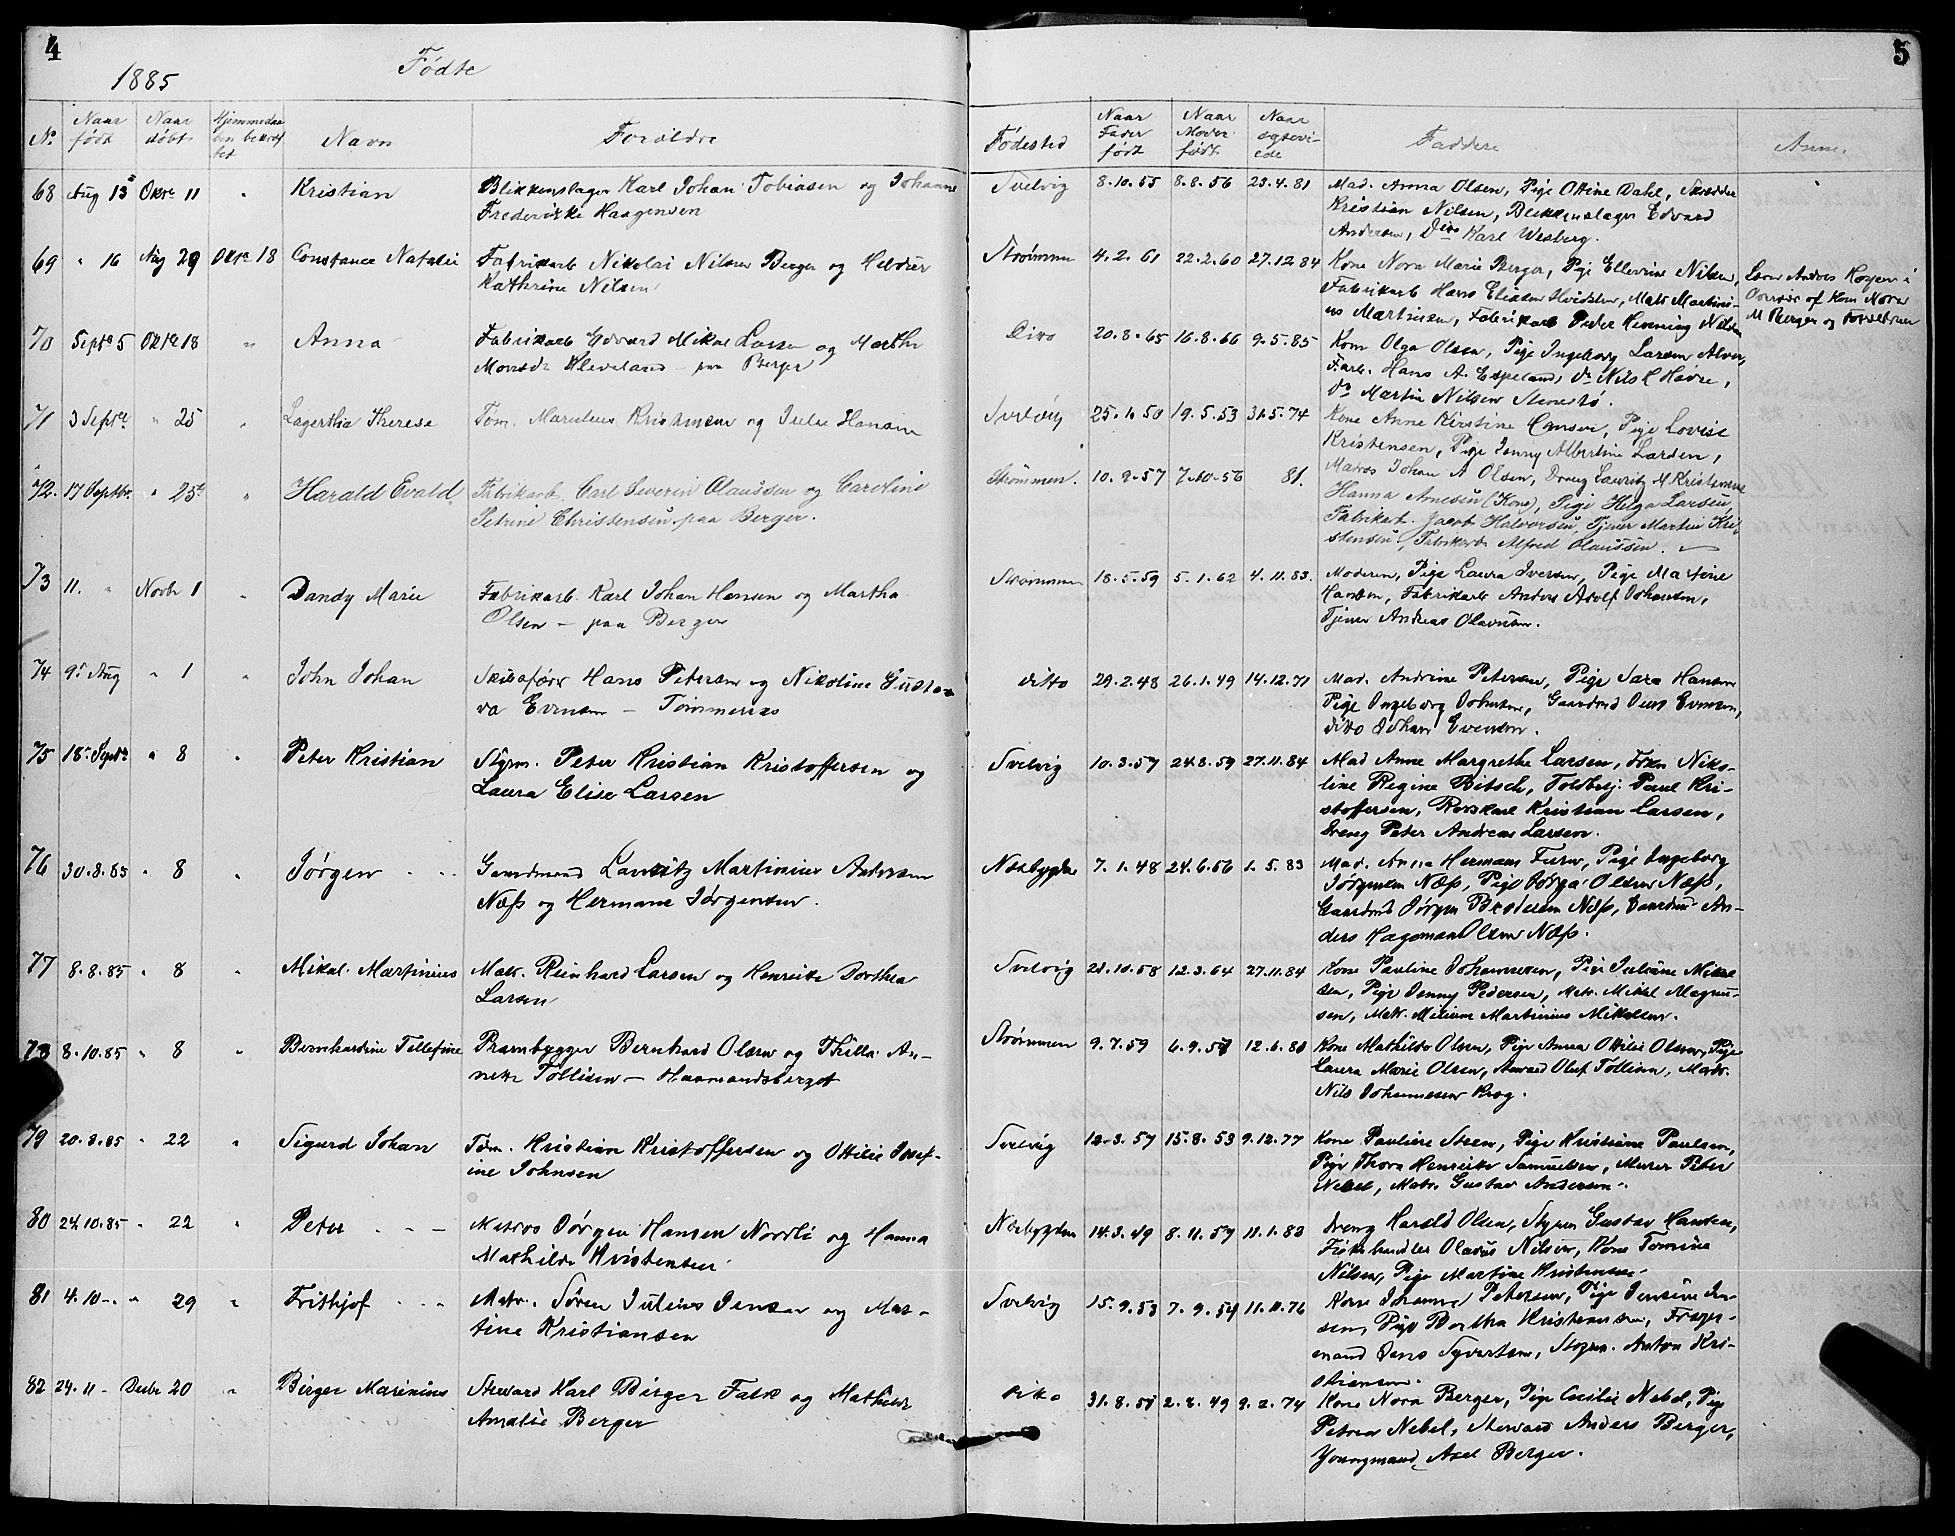 4
1885
Födte
5
No.
Naar født
Naar døbt
Navn
Forældre
Fødested
Naar Fader født
Naar Moder født
Naar egtevi-ede
Faddere
Anm.
68 Aug 15 Oktr 11 " Kristian Blikkenslager Karl Johan Tobiasen og Johanne Svelvig 8.10.55 8.8.56 23.4.81 Mad. Anna Olsen, Pige Ottine Dahl, Skrædder
Frederikke Haagensen Kristian Nilsen, Blikkenslager Edvard
Andersen, Karl Wesberg.
69 " 16 Aug 29 Oktr 18 Constance Natalie Fabrikarb Nikolai Nilsen Berger og Strømmen 4.2.61 22.2.60 27.12.84 Kone Nora Marie Berger, Pige Ellevine Nilsen,
Kathrine Nilsen Fabrikarb Hans Eliasen Hvidsten, Matr Martini-
us Martinsen, Fabrikarb Peder Henning Nilsen
M Berger og Forældrene
70 Septr 5 Oktr 18 " Anna Fabrikarb Edvard Mikal Larsen og Marthe Dito 20.8.65 16.8.66 9.5.85 Kone Olga Olsen, Pige Ingeborg Larsen
Kleveland paa Berger Hans A. Espeland, Do Nils Havre,
Do Martin Nilsen
71 3 Septr " 25 " Lagertha Therese Tøm. Kristensen og Hansen Svelvig 25.1.50 19.5.53 31.5.74 Kone Anne Kirstine Hansen, Pige Lovise
Kristensen, Pige Jenny Albertine Larsen,
Matros Johan A Olsen, Dreng Lauritz M Kristensen
72. 17 Septbr. " 25 " Harald Evald Fabrikarb. Carl Severin Olaussen og Caroline Strømmen. 10.9.57 7.10.56 81. Hanna Arnesen (Kone), Pige Helga Larsen,
Petrine Christensen paa Berger. Fabrikarb. Jacob Halvorsen, Tjener Martin Kri-
stensen, Fabrikarb Alfred Olaussen.
73 11. " Novbr 1 " Dandy Marie Fabrikarb. Karl Johan Hansen og Martha Strømmen 18.5.59 5.1.62 4.11.83. Moderen, Pige Laura Iversen, Pige Martine
Olsen - paa Berger Hansen, Fabrikarb Anders Adolf Johansen,
Tjener Andreas Olaussen.
74 9. Aug " 1 " John Johan Skibsfører Hans Petersen og Nikoline Gusta- ditto 29.2.48 26.1.49 14.12.71 Mad. Andrine Petersen, Pige Sara Hansen
va Evensen - Tømmeraas Pige Ingeborg Johnsen, Gaardmd Evensen,
ditto Johan Evensen.
75 18. Septr " 8 " Peter Kristian Styrm. Peter Kristian Kristoffersen og Svelvig 10.3.57 24.8.59 27.11.84 Mad Anne Margrethe Larsen, Frkn Niko-
Laura Elise Larsen line Regine Bitsch, Toldbetj. Paul Kri-
stoffersen, Kristian Larsen,
Dreng Peter Andreas Larsen.
76 30.8.85 " 8 " Jørgen - - Gaardmand Lauritz Martinius Andersen Næsbygden 7.1.48 24.6.56 1.5.83 Mad. Anna Hermans Furu, Pige Ingeborg
Næss og Hermane Jørgensen. Jørgensen Næss, Pige Olsen Næss,
Gaardmd Jørgen Næss, An-
ders Hageman Olsen Næss.
77 8.8.85 " 8 " Mikal Martinius Matr. Reinhard Larsen og Henrikke Dorthea Svelvig 21.10.58 12.3.64 27.11.84 Kone Pauline Johannesen, Pige Juliane Mikal
Larsen sen, Pige Jenny Pedersen, Matr. Mikal Magnu-
sen, Matr. Martinius Mikalsen.
78 8.10.85 " 8 " Bernhardine Tillefine Prambygger Bernhard Olsen og Thilla An- Strømmen 9.7.59 6.9.57 12.6.80 Kone Mathilde Olsen, Pige Anna Ottilie Olsen, Pige
nette Tollisen - Haamandsberget Laura Marie Olsen, Oluf Tollisen, Matr.
Nils Johannesen Krog.
79 20.8.85 " 22 " Sigurd Johan Tøm. Kristian Kristoffersen og Ottilie Josef- Svelvig 12.3.57 15.8.53 9.12.77 Kone Pauline Steen, Pige Kristiane Paulsen,
ine Johnsen Pige Thora Henrikke Samuelsen, Murer Peter
Nebel, Matr. Gustav Andersen.
80 24.10.85 " 22 " Peter - - Matros Jørgen Hansen Nordli og Hanna Næsbygden 14.3.49 8.11.59 11.1.83 Dreng Harald Olsen, Styrm Gustav Hansen,
Mathilde Kristensen Fiskehandler Olaus Nilsen, Kone Tomine
Nilsen, Pige Martine Kristensen
81 4.10 " 29 " Frithjof - - Matr. Søren Julius Jensen og Mar- Svelvig 15.9.53 7.9.54 11.11.76 Kone Johanne Petersen, Pige Jensine Jen-
tine Kristiansen sen, Pige Bertha Kristiansen, Færge-
mand Jens Syvertsen, Styrm. Anton Kri-
stiansen.
82 24.11 - Decbr 20 " Birger Marinius Steward Karl Birger Falk og Mathilde dito 31.8.51 2.2.49 9.2.74 Kone Nora Berger, Pige Cecilie Nebel, Pige
Amalie Berger Petrea Nebel, Steward Anders Berger,
Youngmand Axel Berger.